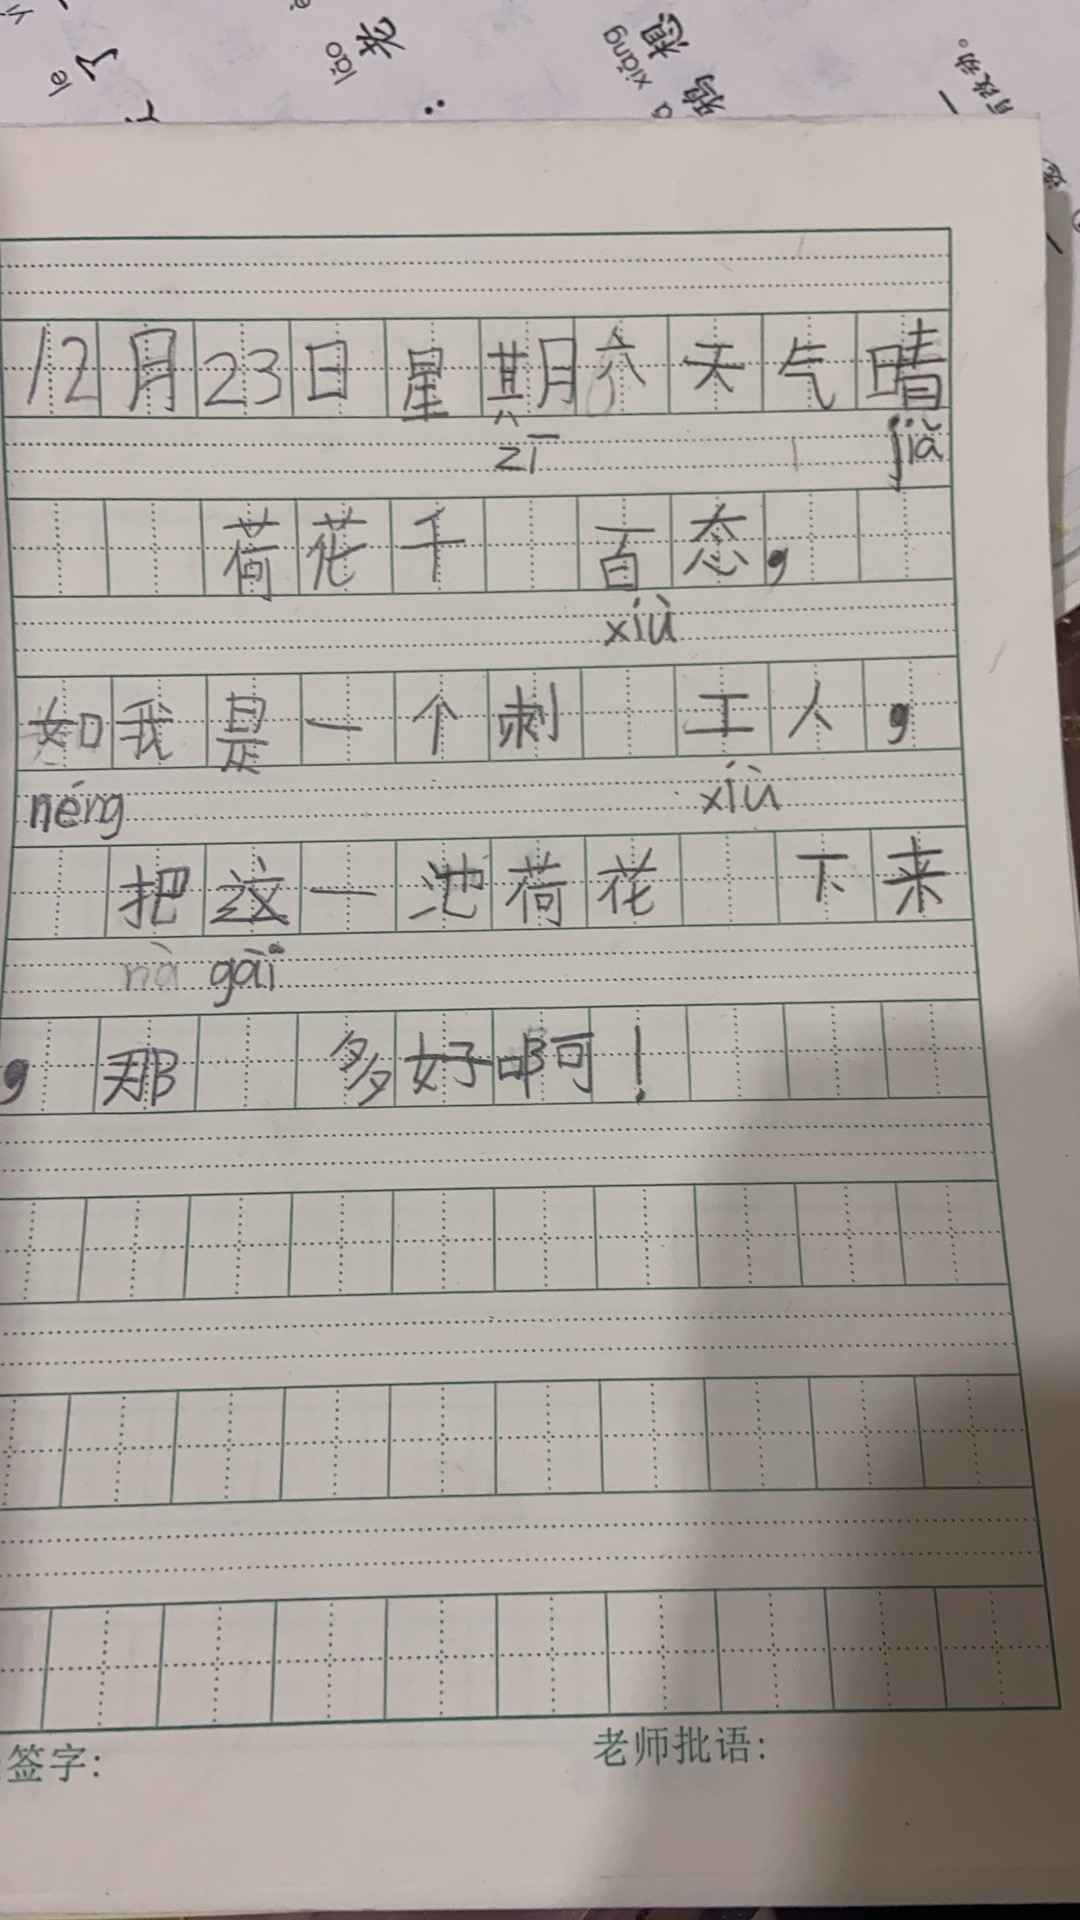 le
了
lǎo
老
xiǎng
想
鸦
有改动。
12月23日星期六天气晴
zī jià
荷花千 百态，
xiù
如我是一个刺 工人，
néng xiù
把这一池荷花 下来
nà gāi
，那 多好啊！
签字：
老师批语：